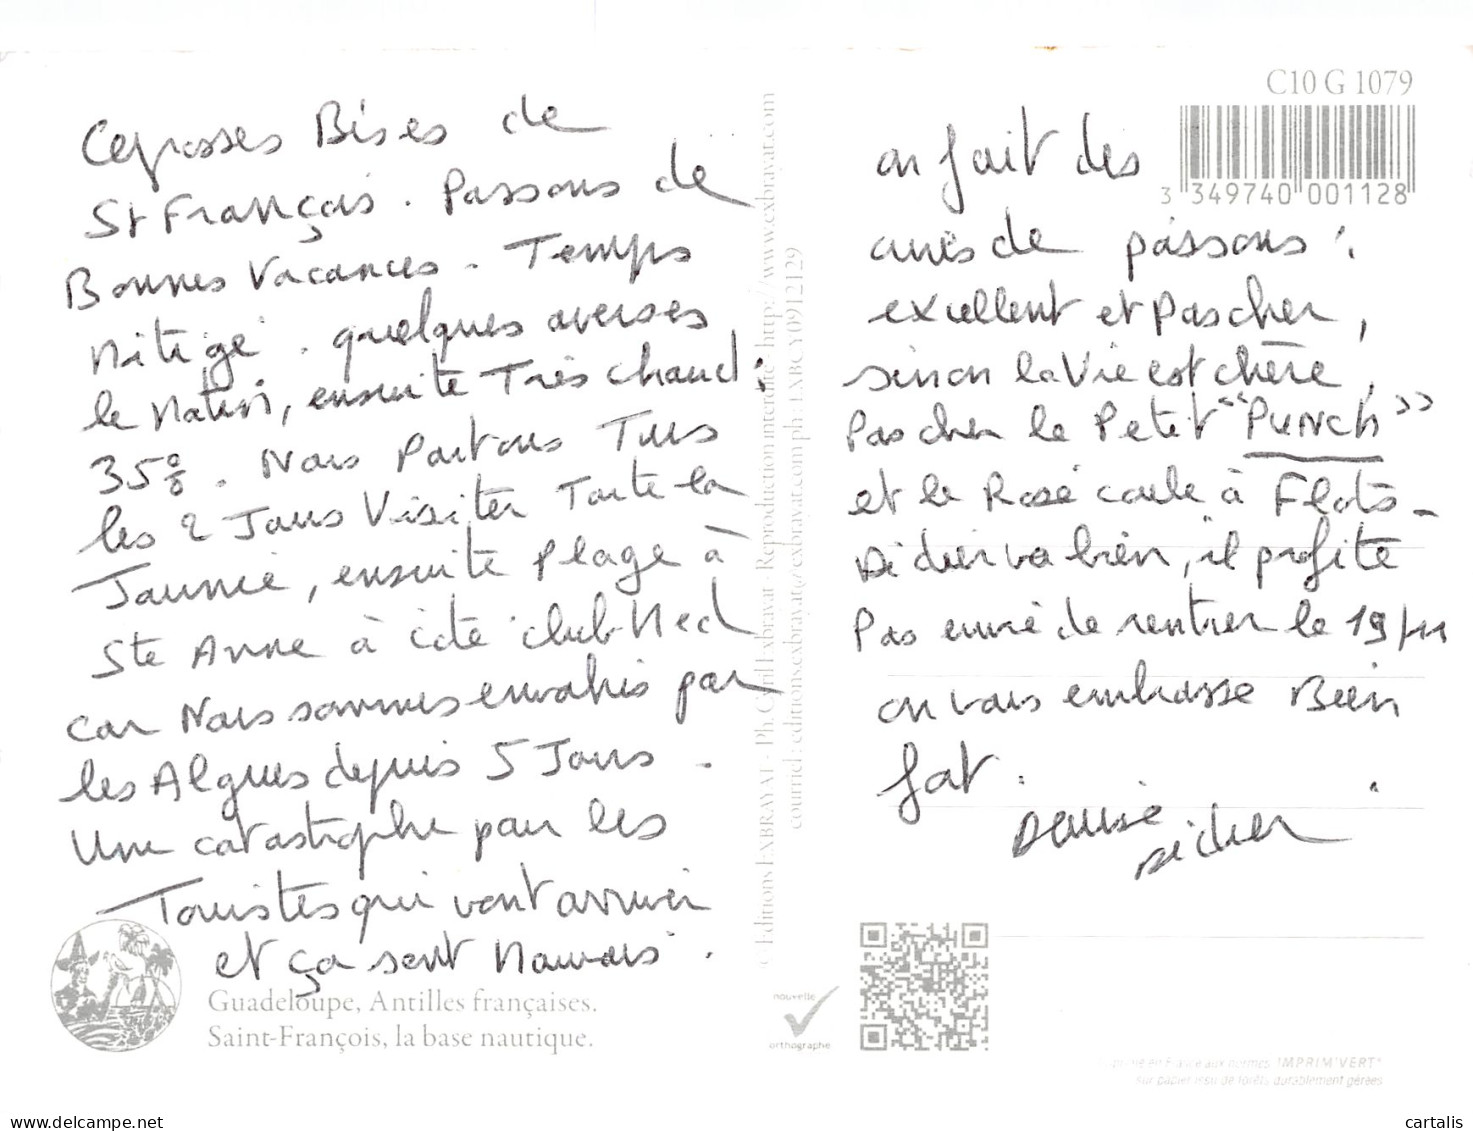 Cegrosses Bises de
St François. Passons de
Bonnes Vacances. Temps
mitigé. quelques averses
le matin, ensuite Très chaud :
35°. Nous Partons Tus
les 2 Jours Visiter Toute la
Journée, ensuite plage à
Ste Anne à côté club Med
car Nous sommes envahis par
les Algues depuis 5 Jours.
Une catastrophe pour les
Touristes qui vont arriver
et ça sent Mauvais.
Guadeloupe, Antilles françaises.
Saint-François, la base nautique.
© Editions EXBRAYAT - Ph. Cyril Exbrayat - Reproduction interdite - http://www.exbrayat.com
courriel : editions.exbrayat@exbrayat.com
nouvelle
orthographe
C10 G 1079
3 349740 001128
on fait des
cures de poissons :
excellent et Pascher,
sinon la Vie est chère,
Pas cher le Petit "PUNCH"
et le Rosé coule à Flots -
Didier va bien, il profite
Pas envie de rentrer le 19/11
on vous embrasse Bien
fort.
Denise
Didier
IMPRIM'VERT®
sur papier issu de forêts durablement gérées
cartalis